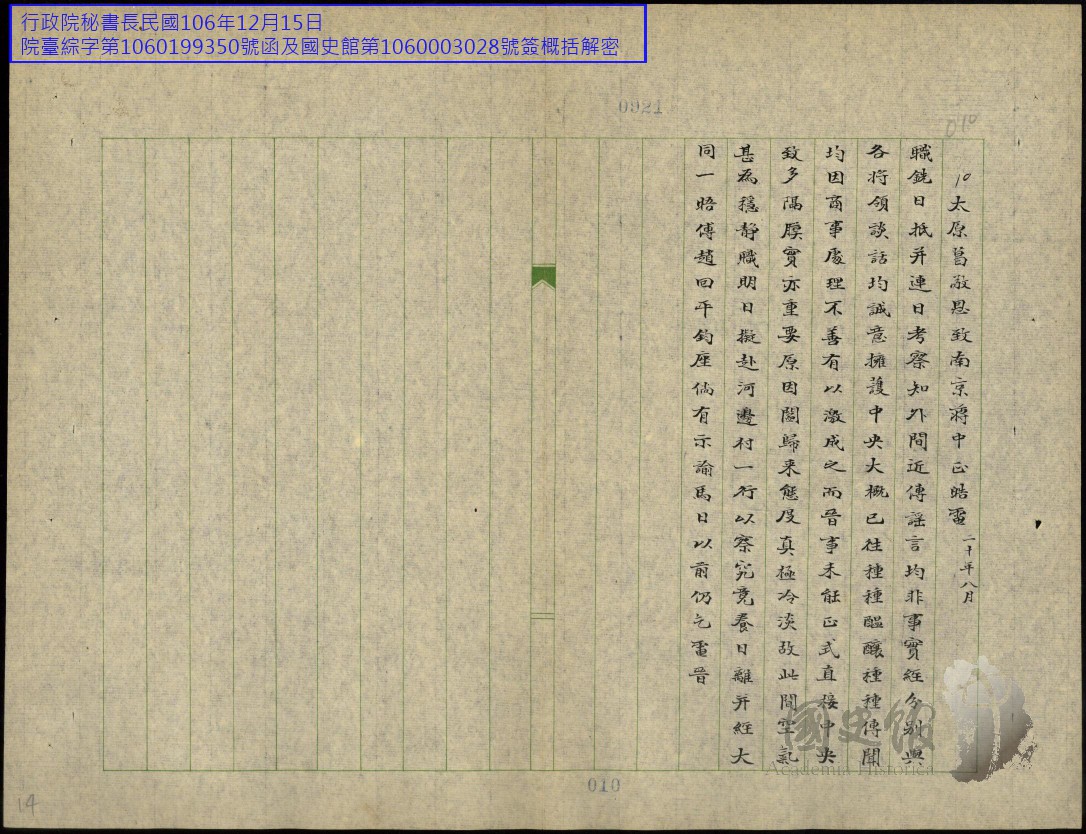 行政院秘書長民國106年12月15日
院臺綜字第1060199350號函及國史館第1060003028號簽概括解密
0921
010
10太原葛敬恩致南京蔣中正皓電二十年八月
職銑日抵并連日考察知外間近傳謠言均非事實經分別與
各將領談話均誠意擁護中央大概已往種種醞釀種種傳聞
均因商事處理不善有以激成之而晉事未能正式直接中央
致多隔膜實亦重要原因閻歸來態度真極冷淡故此間空氣
甚為穩靜職明日擬赴河邊村一行以察究竟養日離并經大
同一晤傅趙回平鈞座倘有示諭馬日以前仍乞電晉
國史館
Academia Historica
010
14